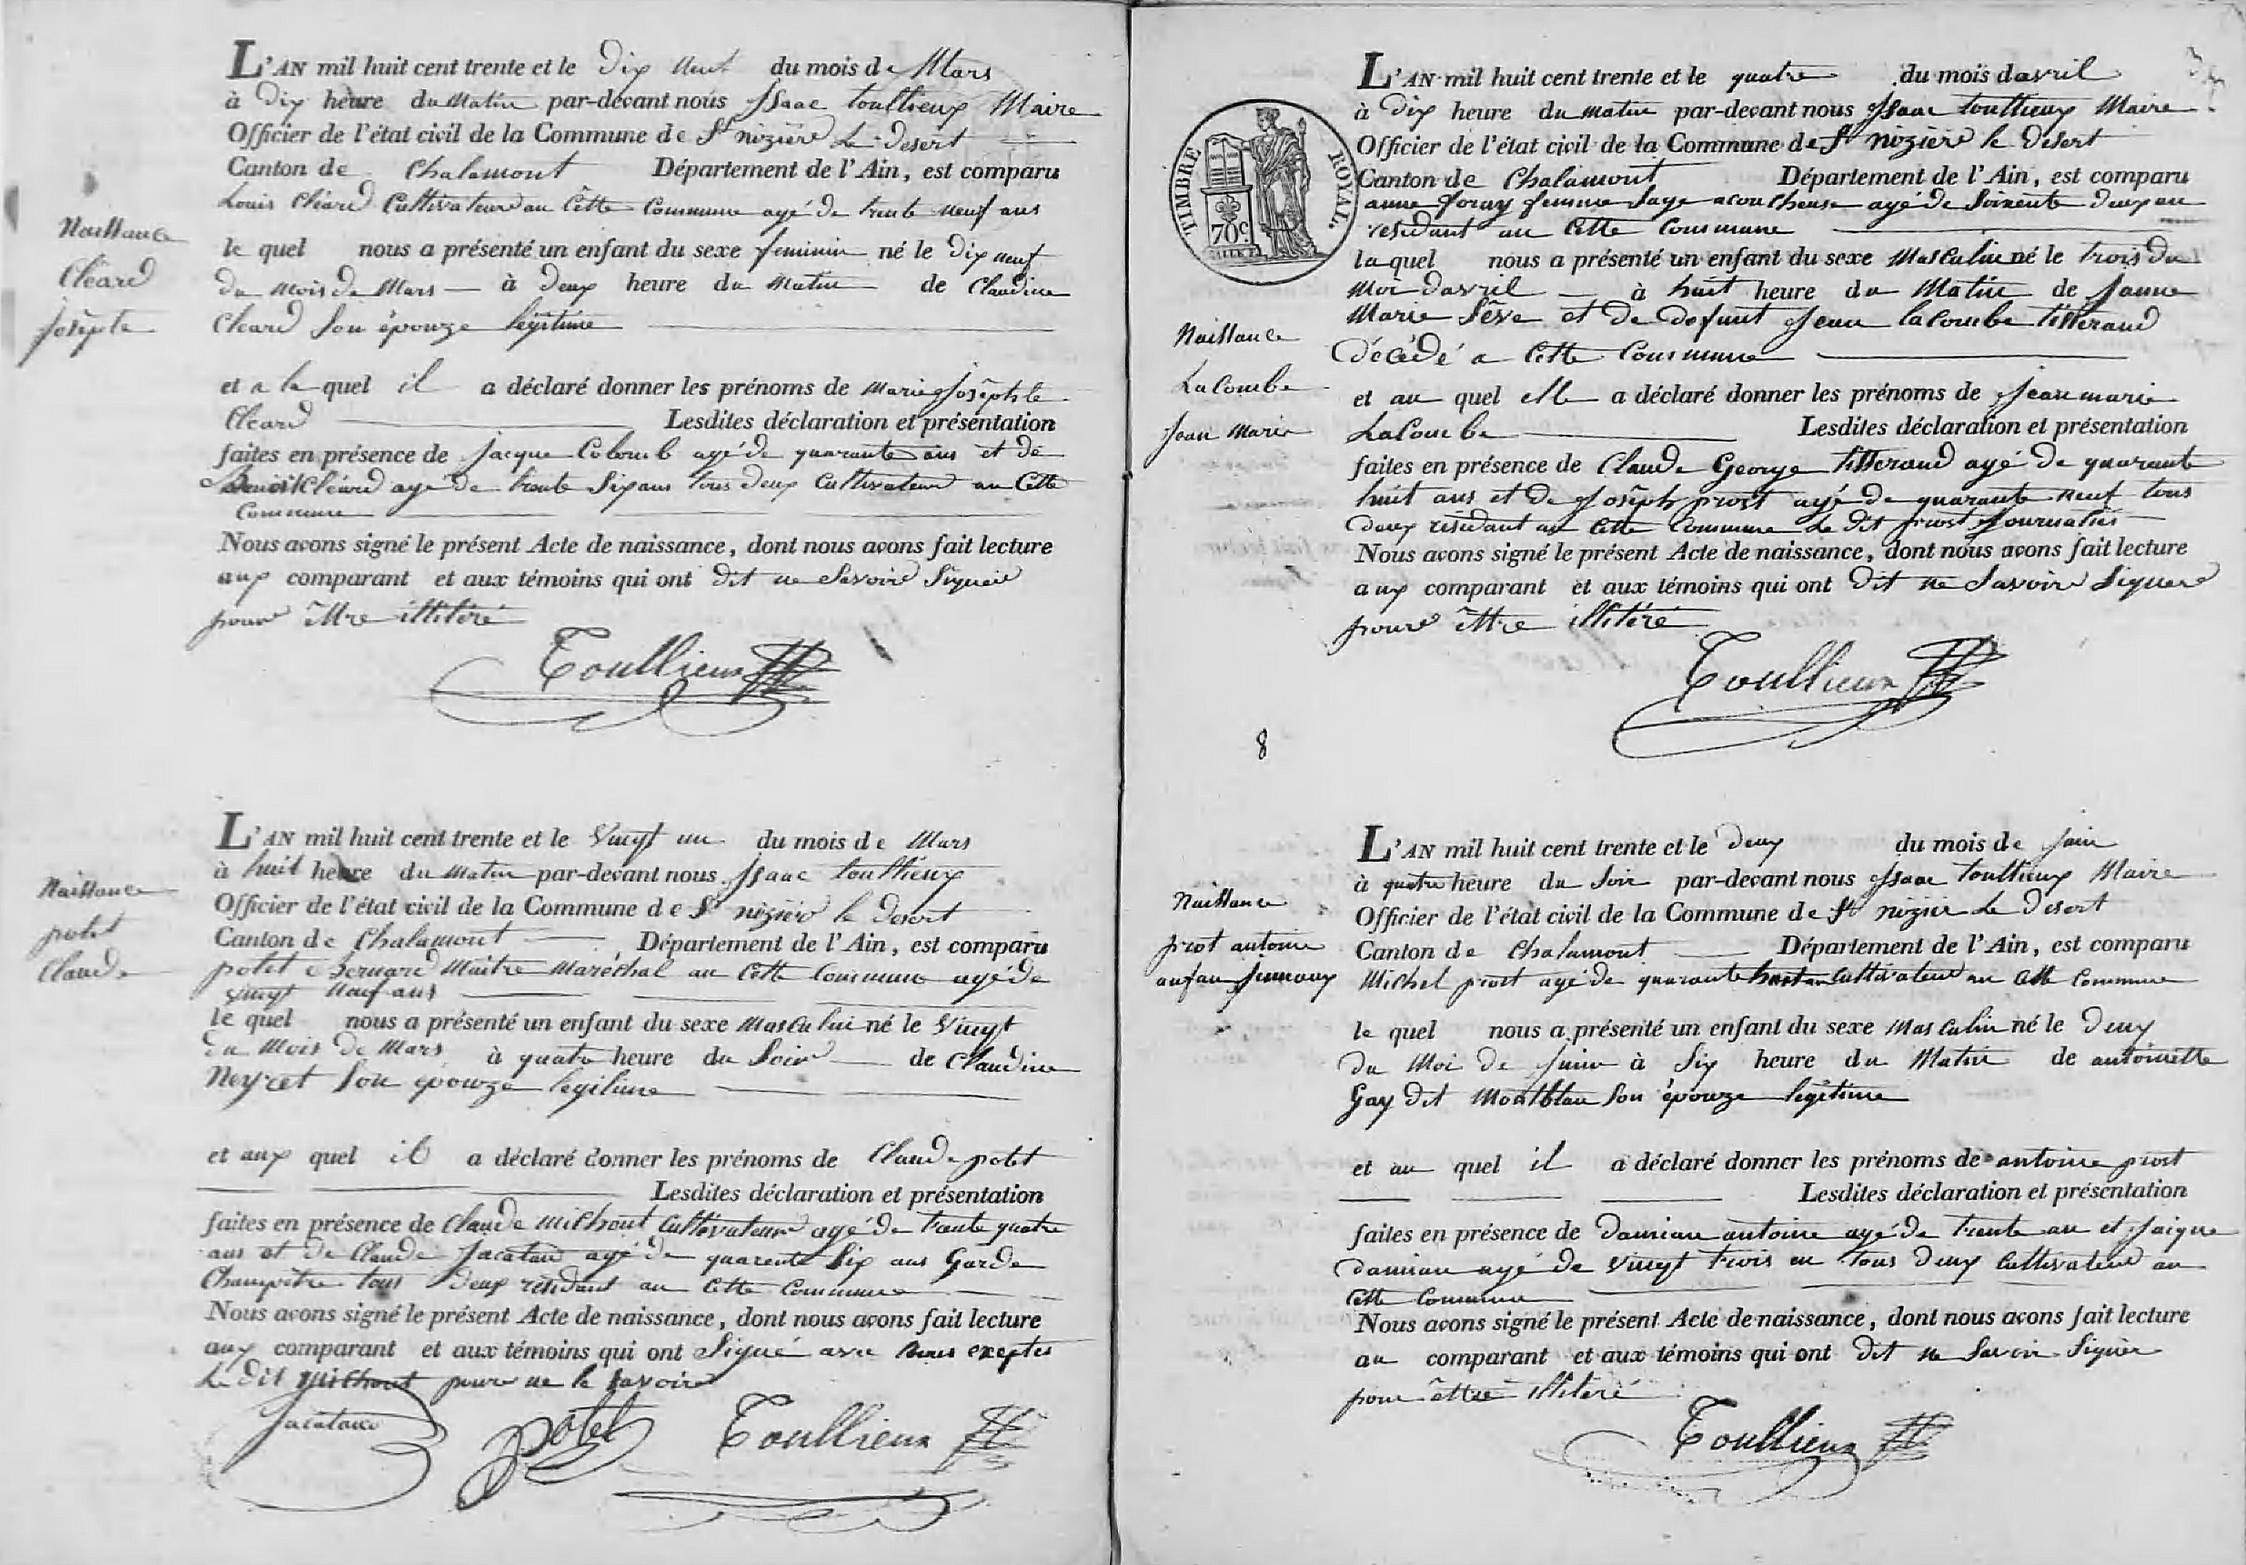 Naissance
Cléard
Josephte
L'AN mil huit cent trente et le Dix neuf du mois de Mars
à Dix heure du Matin par-devant nous Isaac toullieux Maire
Officier de l'état civil de la Commune de St nizier Le Desert
Canton de Chalamont Département de l'Ain, est comparu
Louis Cléard Cultivateur au Cette Commune agé de trente neuf ans
le quel nous a présenté un enfant du sexe feminin né le Dix neuf
du mois de Mars à Deux heure du Matin de Claudine
Cleard Son épouze légitime
et a la quel il a déclaré donner les prénoms de marie Josephte
Cleard Lesdites déclaration et présentation
faites en présence de Jacque Colomb agé de quarante ans et de
Benoit Cléard agé de trente Six ans tous deux Cultivateur au Cette
Commune
Nous avons signé le présent Acte de naissance, dont nous avons fait lecture
aux comparant et aux témoins qui ont dit ne Savoir Signer
pour être illitéré
Toullieux
Naissance
potet
Claude
L'AN mil huit cent trente et le Vingt un du mois de Mars
à huit heure du Matin par-devant nous Isaac toullieux
Officier de l'état civil de la Commune de St nizier le desert
Canton de Chalamont Département de l'Ain, est comparu
potet Bernard Maitre Maréchal au Cette Commune agé de
vingt neuf ans
le quel nous a présenté un enfant du sexe Masculin né le Vingt
du Mois de Mars à quatre heure du Soir de Claudine
Neyret Son épouze legitime
et aux quel il a déclaré donner les prénoms de Claude potet
Lesdites déclaration et présentation
faites en présence de Claude Michout Cultivateur agé de trente quatre
ans et de Claude Jacatau agé de quarente Six ans Garde
Champètre tous deux résidant au Cette Commune
Nous avons signé le présent Acte de naissance, dont nous avons fait lecture
aux comparant et aux témoins qui ont Signé avec nous exeptes
Le dit Michout pour ne le Savoir
Jacatau
Potet
Toullieux
TIMBRE ROYAL.
70c.
Naissance
LaCombe
Jean Marie
L'AN mil huit cent trente et le quatre du mois davril
à Dix heure du matin par-devant nous Isaac toullieux Maire
Officier de l'état civil de la Commune de St nizier le Desert
Canton de Chalamont Département de l'Ain, est comparu
anne foray femme Sage acoucheuse agé de Soixente deux an
residant au Cette Commune
la quel nous a présenté un enfant du sexe Masculin né le trois du
Moi davril à huit heure du Matin de Janne
Marie Sève et de defunt Jean laCombe titterand
décédé a Cette Commune
et au quel elle a déclaré donner les prénoms de Jean marie
LaCombe Lesdites déclaration et présentation
faites en présence de Claude George titterand agé de quarante
huit ans et de Joseph prost agé de quarante neuf tous
deux résidant au Cette Commune Le dit prost Journalier
Nous avons signé le présent Acte de naissance, dont nous avons fait lecture
aux comparant et aux témoins qui ont dit ne Savoir Signer
pour être illitéré
Toullieux
8
Naissance
prot antoine
L'AN mil huit cent trente et le deux du mois de Juin
à quatre heure du Soir par-devant nous Isaac toullieux Maire
Officier de l'état civil de la Commune de St nizier Le Desert
Canton de Chalamont Département de l'Ain, est comparu
Michel prost agé de quarante Cultivateur au Cette Commune
le quel nous a présenté un enfant du sexe Masculin né le deux
du Moi de Juin à Six heure du Matin de antoinette
Gay dit Montblan Son épouze légitime
et au quel il a déclaré donner les prénoms de antoine prost
Lesdites déclaration et présentation
faites en présence de damian antoine agé de trente an et Jaique
damian agé de vingt trois an tous deux Cultivateur au
Cette Commune
Nous avons signé le présent Acte de naissance, dont nous avons fait lecture
au comparant et aux témoins qui ont dit ne Savoir Signer
pour être illitéré
Toullieux